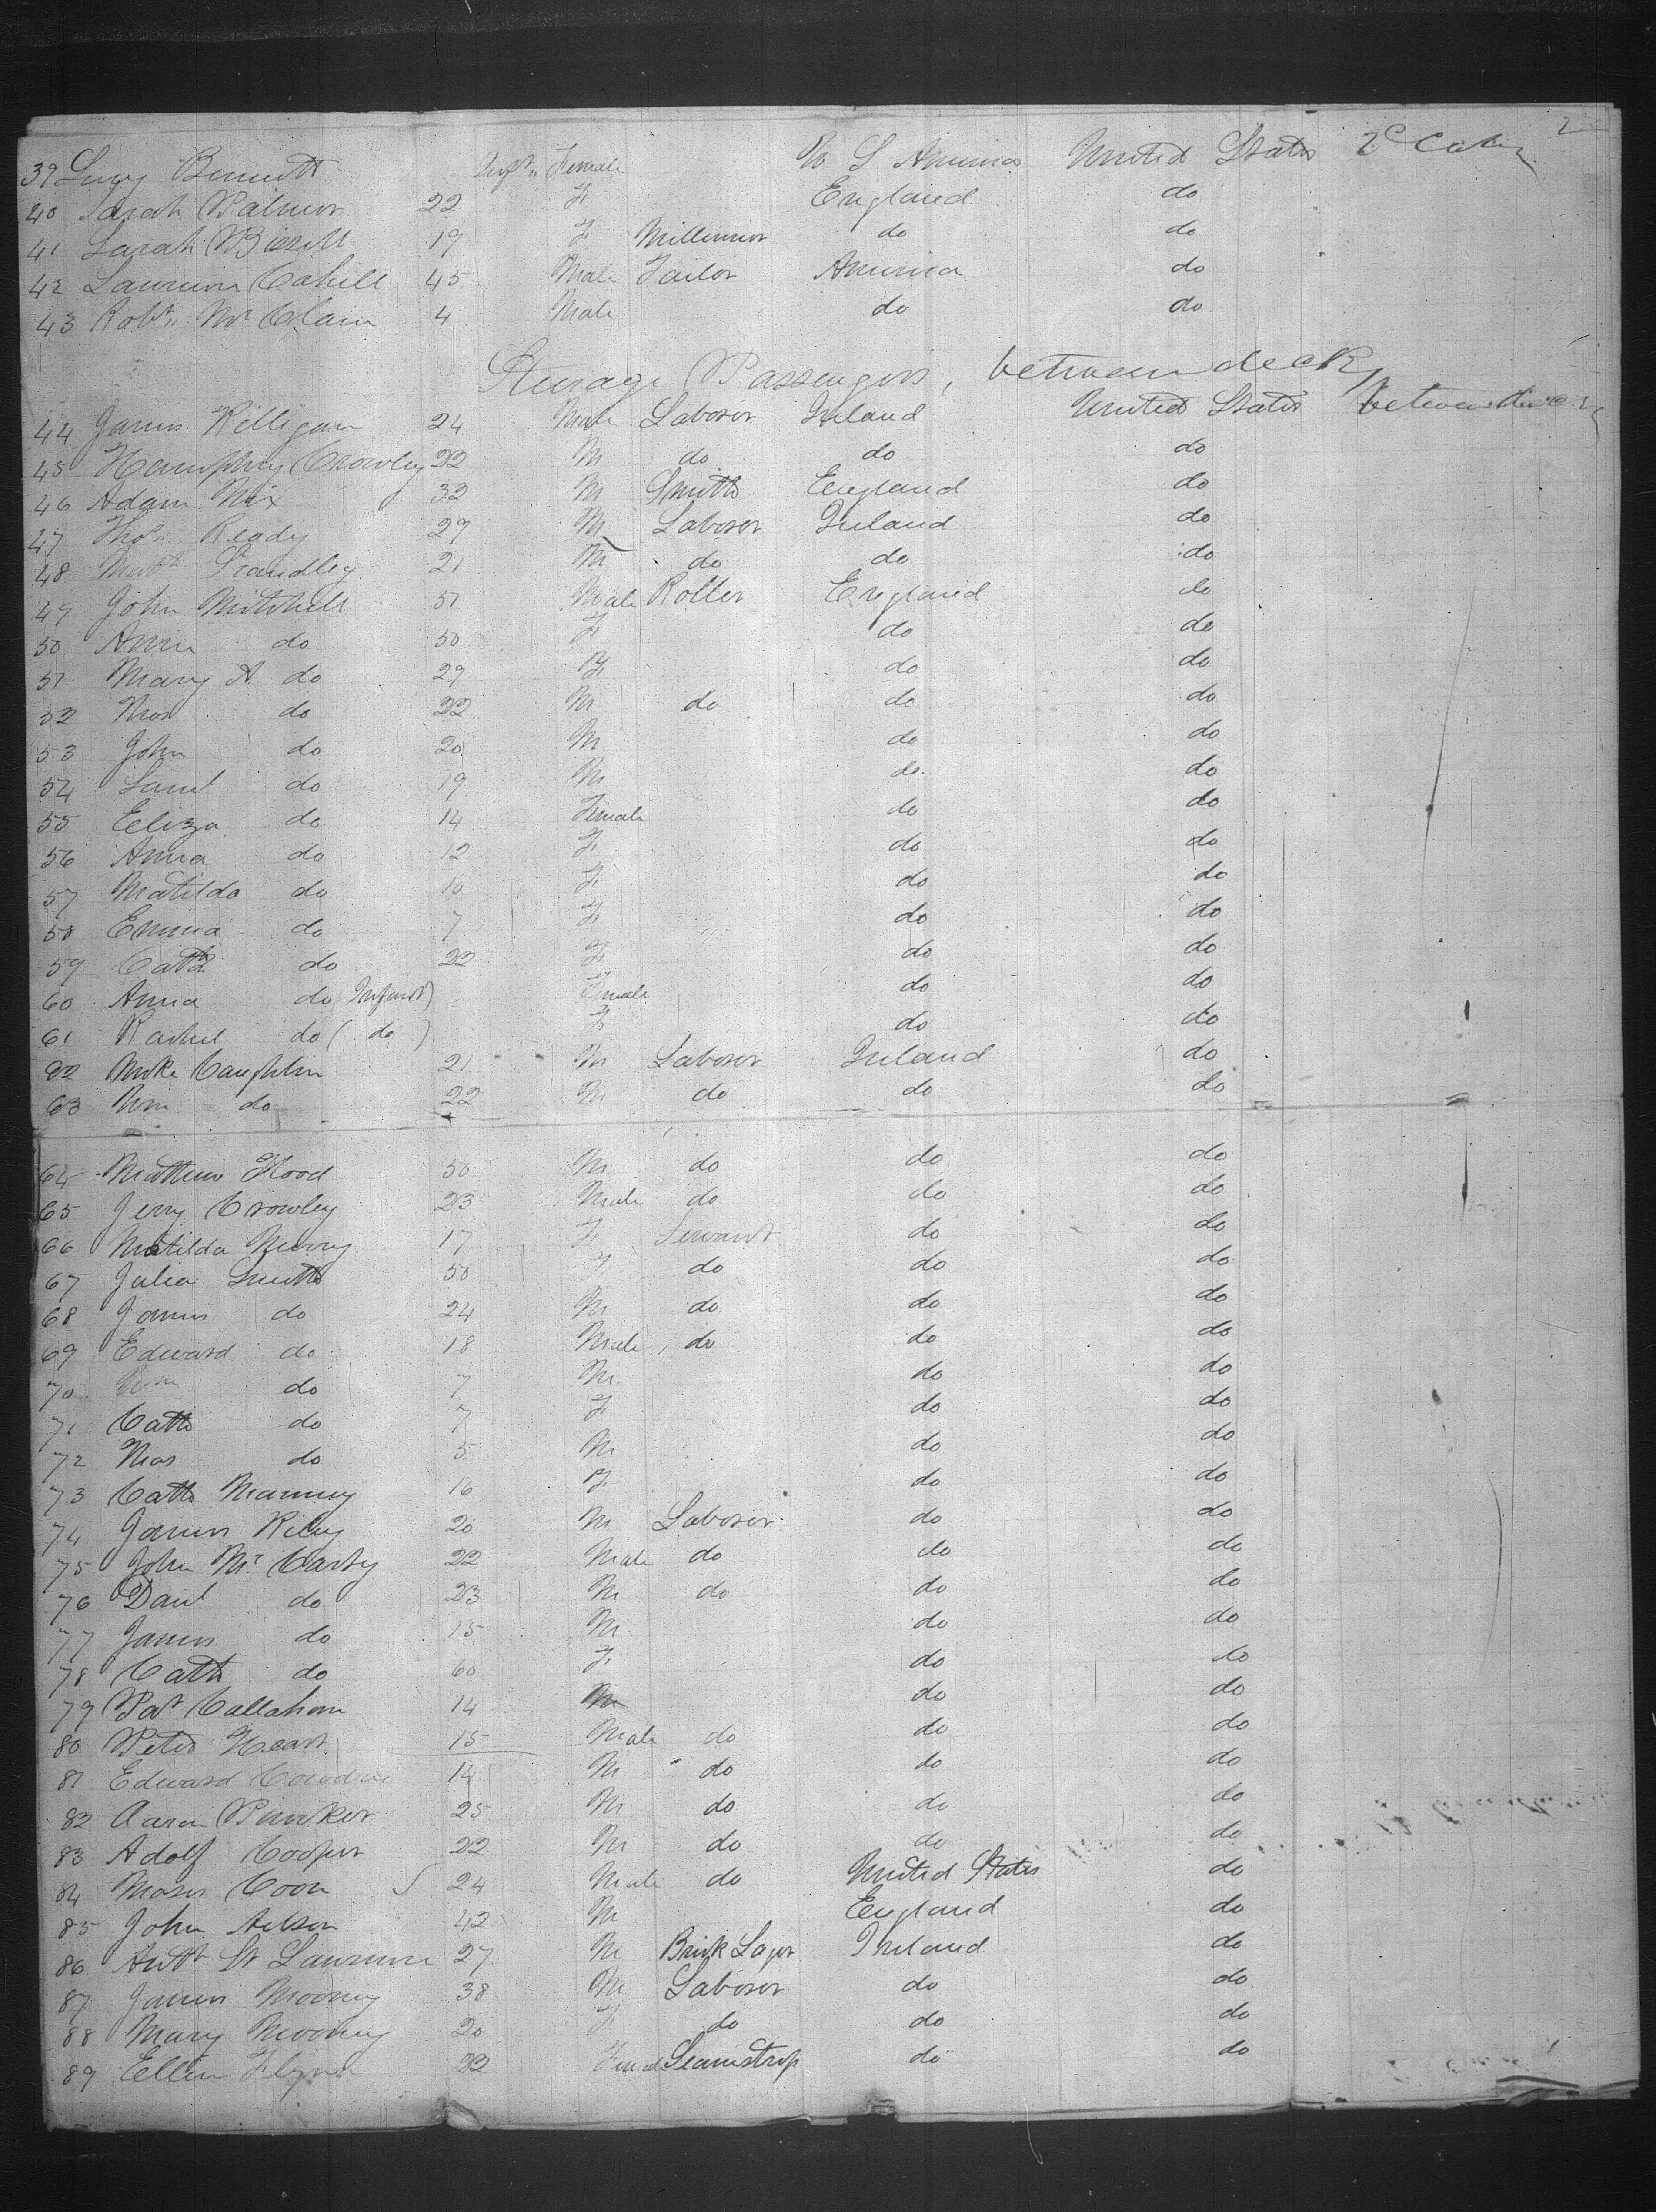 2
39 Lucy Bennett Inft" Female U S America United States 2d Cabin
40 Sarah Palmer 22 F England do
41 Sarah Bissell 19 F Millenner do do
42 Lawrence Cahill 45 Male Tailor America do
43 Robt" Mc Clain 4 Male do do
Steerage Passengers, between decks
44 James Killigan 24 Male Laborer Ireland United States between decks
45 Humphrey Crowley 22 M do do do
46 Adam Nix 32 M Smith England do
47 Thos" Ready 29 M Laborer Ireland do
48 Matth Standley 21 M do do do
49 John Mitchell 51 Male Roller England do
50 Anna do 50 F do do
51 Mary A do 29 F do do
52 Thos do 22 M do do do
53 John do 20 M do do
54 Saml do 19 M do do
55 Eliza do 14 Female do do
56 Anna do 12 F do do
57 Matilda do 10 F do do
58 Emma do 7 F do do
59 Cath do 22 F do do
60 Anna do Infant) Female do do
61 Rachel do ( do ) F do do
62 Mike Caughlin 21 M Laborer Ireland do
63 Wm do 22 M do do do
64 Matthew Flood 50 M do do do
65 Jerry Crowley 23 Male do do do
66 Matilda 17 F Servant do do
67 Julia Smith 50 F do do do
68 James do 24 M do do do
69 Edward do 18 Male do do do
70 Wm do 7 M do do
71 Cath do 7 F do do
72 Thos do 5 M do do
73 Cath Manney 16 F do do
74 James Riley 20 M Laborer do do
75 John Mc Carty 22 Male do do do
76 Danl do 23 M do do do
77 James do 15 M do do
78 Cath do 60 F do do
79 Pat Callahan 14 M do do
80 Peter Heart 15 Male do do do
81 Edward 14 M do do do
82 Aaron Pincker 25 M do do do
83 Adolf Cooper 22 M do do do
84 Moses Coon 24 Male do United States do
85 John Nelson 42 M England do
86 Anth St Lawrence 27 M Brick Layer Ireland do
87 James Mooney 38 M Laborer do do
88 Mary Mooney 20 F do do do
89 Ellen Flynn 22 Female Seamstress do do